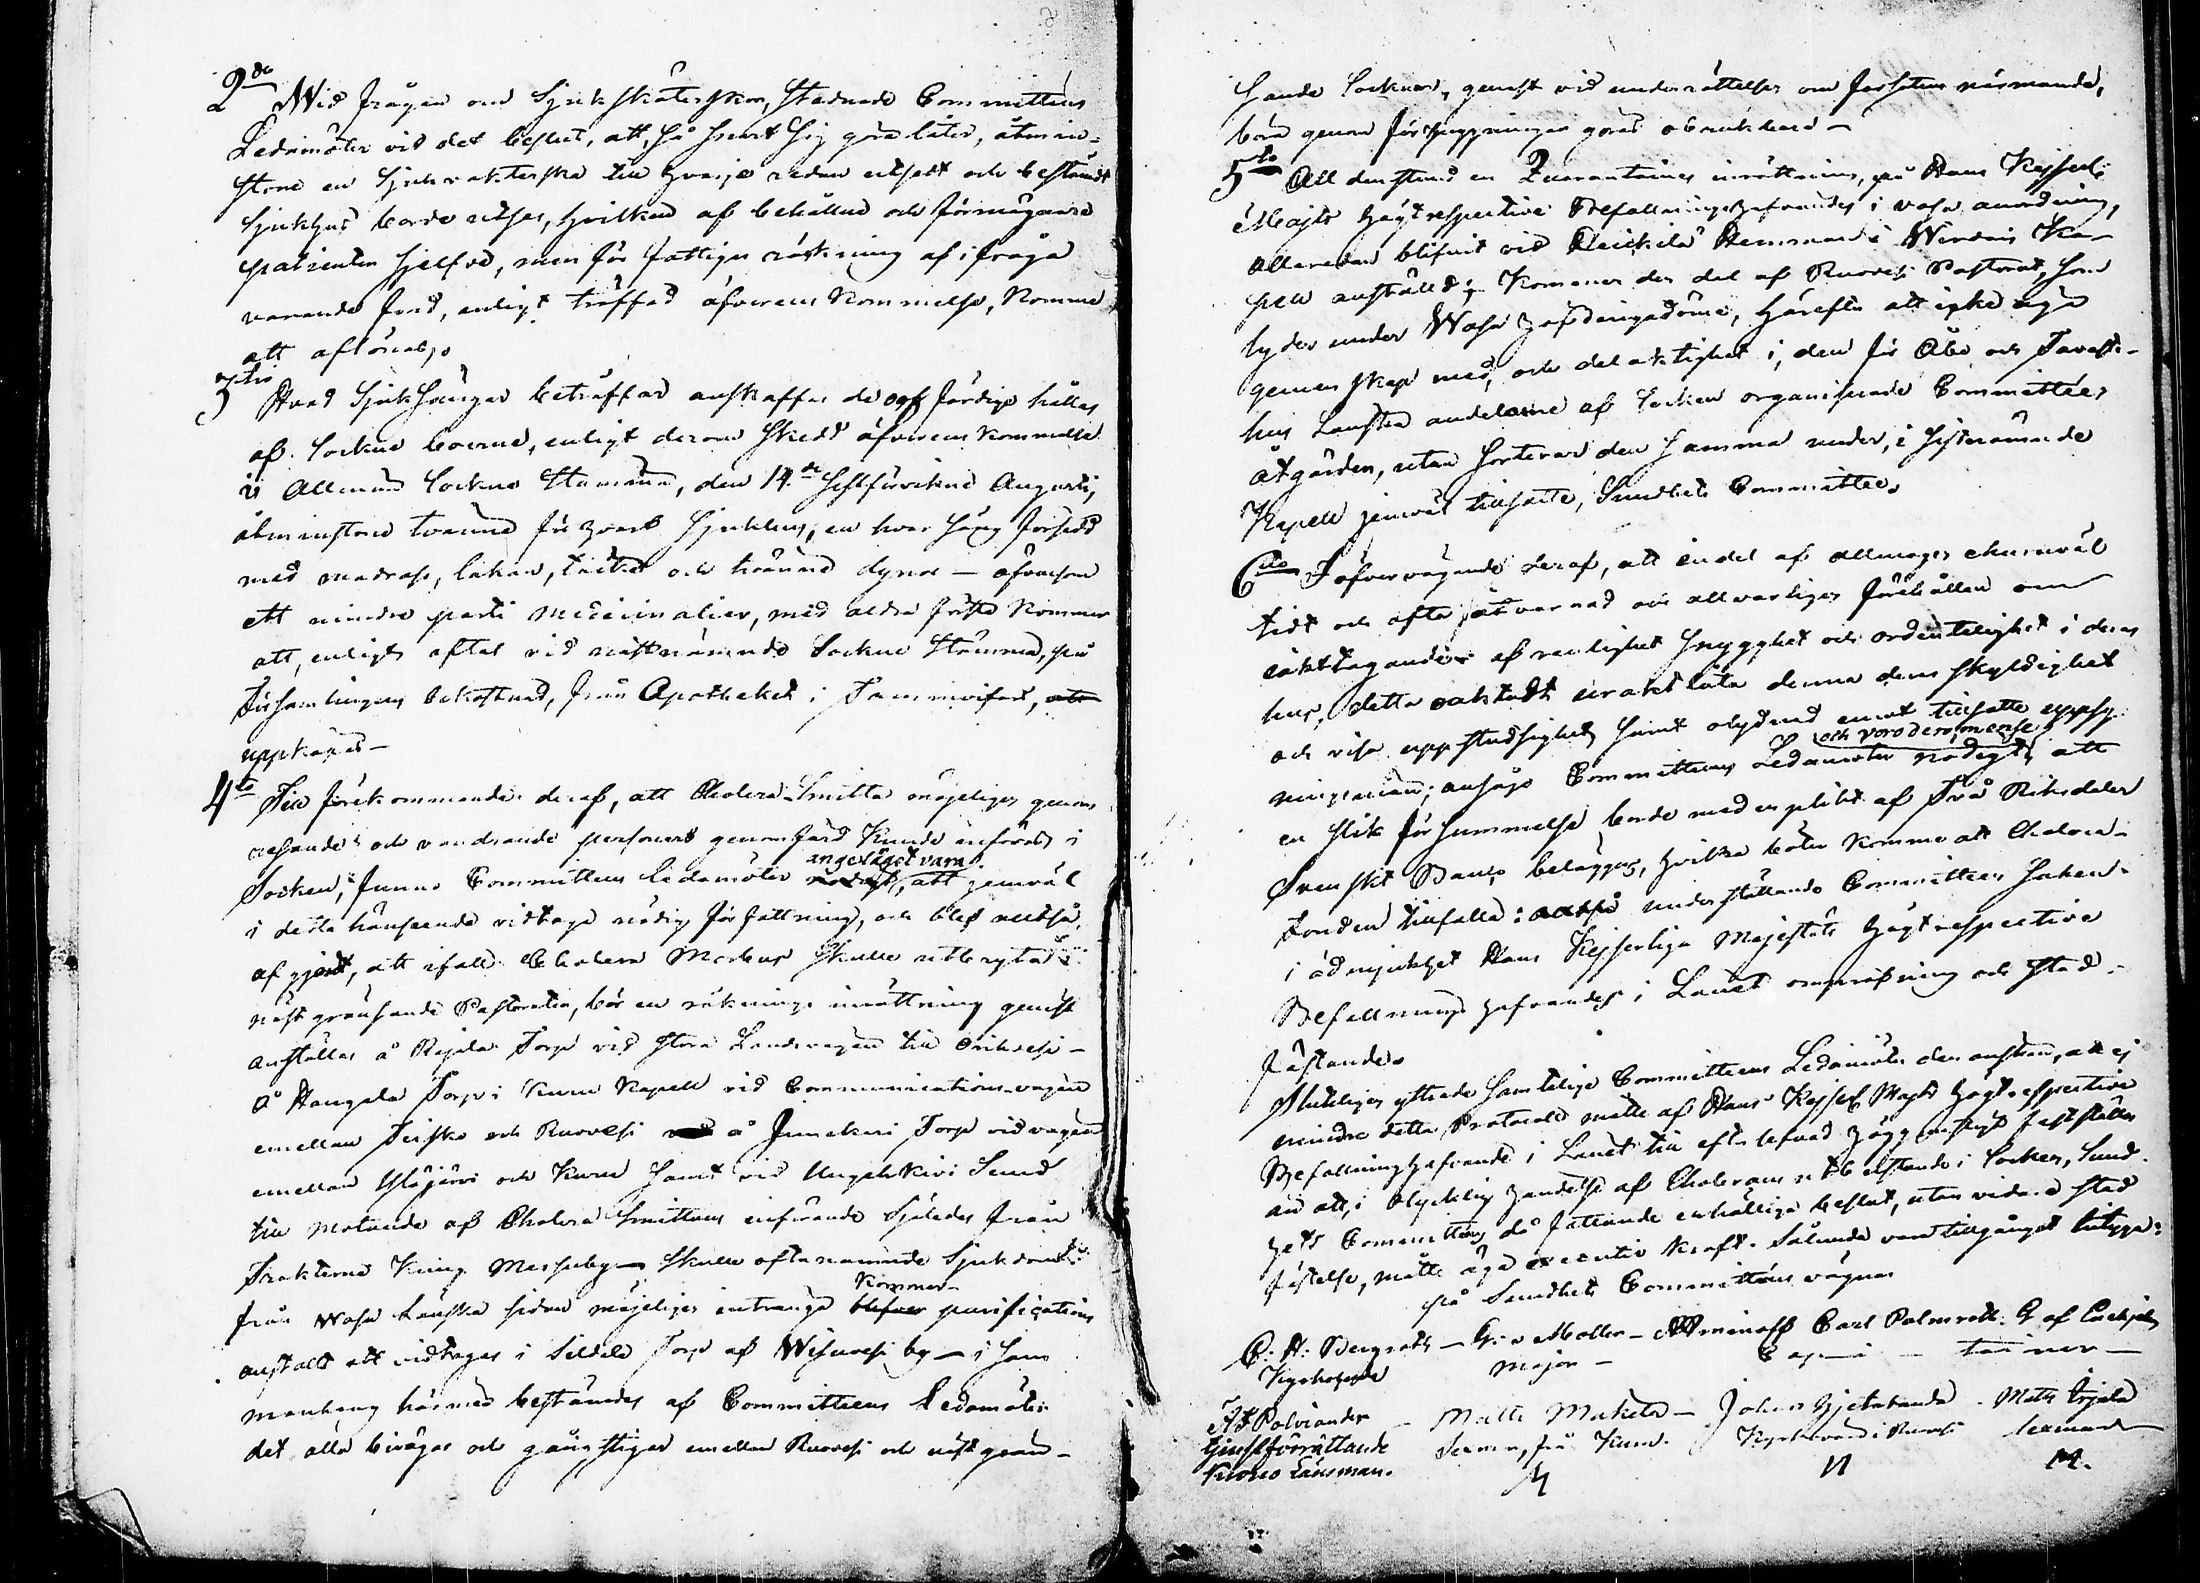 2do Wid frågan om Sjukskötterskor, stadnade Committéens
Ledamöter vid det beslut, att, så snart sig göra låter, åtmin-
stone en Sjukvakterska till hvarje redan utsedt och bestämdt
Sjukhus borde utses, hvilken af behållne och förmögnare
patienten sjelfve, men för fattiges räkning af i fråga
varande fond, enligt träffad öfverenskommelse, komme
att aflönas.
3tio Hvad Sjuksängar beträffar anskaffas de och färdige hållas
af Sockne boerne, enligt derom skedd öfverenskommelse
vi Allmän Sockne Stämma, den 14de sistförvikne Augusti,
åtminstone tvänne för hvart Sjukhus, en hvar säng försedd
med madrass, lakan, täcke och tvänne dynor — äfvensom
ett mindre parti medicinalier, med aldra första kommer
att, enligt aftal vid nästnämnde Sockne Stämma, på
Församlingens bekostnad, från Apotheket i Tammerfors,
uppköpas —
4to Till förekommande deraf, att Cholera Smitta möjeligen genom
resande och vandrande personers genomfärd kunde införas i
Socken, funno Committéens Ledamöter angeläget vara, att jemväl
i detta hänseende vidtaga nödig författning, och blef alltså
afgjordt, att ifall Cholera Morbus skulle utbryta i
näst gränsande Pastorater, bör en röknings inrättning genast
anställas å Rajala Torp vid stora Landsvägen till Orihvesi —
å Hangala Torp i Kuru Kapell vid Communications vägen
emellan Teisko och Ruovesi å Junekari Torp vid vägen
emellan Ylöjärvi och Kuru samt vid Unnekivi Sund
till motande af Cholera Smittans införande Sjöledes från
Trakterne kring Messuby — skulle oftanämnde Sjukdom
från Wasa Länska sidan möjeligen intränga kommer purifications
anstalt att vidtagas i Sildala Torp af Wisuvesi by — i sam
manhang härmed bestämdes af Committéens Ledamöter
det alla bivägar och gångstigar emellan Ruovesi och näst grän-
sande Socknar, genast vid underrättelse om farsotens närmande,
böra genom förhuggningar göras obrukbara —
5to All denstund en Quarantaines inrättning, på Hans Kejserl:
Majts Högtrespective Befallningshafvandes i Wasa anordning,
allaredan blifvit vid Hemman i Wirdois Ka-
pell anställd; kommer den del af Ruovesi Pastorat, som
lyder under Wasa Höfdingedöme, härefter att icke ega
gemenskap med, och delaktighet i, den för Åbo och Tavaste-
hus Länska andelarne af Socken organiserade Committées
åtgärder, utan sorterar den samma under, i sistnämnde
Kapell jemväl tillsatte, Sundhets Committee.
6to I öfvervägande deraf, att en del af allmogen ehuruväl
tidt och ofta åtvarnad och allvarligen förehållen om
iakttagandet af renlighet snygghet och ordentelighet i deras
hus, detta oaktadt urakt låta denna dem skyldighet
och visa uppstudsighet samt olydnad emot tillsatte uppsy-
ningsmän; ansågo Committéens Ledamöter nödigt och voro derom ense, att
en slik försummelse borde med en plikt af Två Riksdaler
Svenskt Banco beläggas, hvilka böter komma att Cholera-
fonden tillfalla: alltså underställande Committéen saken
i ödmjukhet Hans Kejserliga Majestäts Högtrespective
Befallningshafvandes i Länet ompröfning och stad-
fästande.
Slutligen yttrade samtelige Committéens Ledamöter den önskan, att ej
mindre detta Protocoll måtte af Hans Kejserl Majts Högtrespective
Befallningshafvande i Länet till efterlefnad höggunstigt fastställas
än att, i olycklig händelse af Cholerans utbristande i Socken, Sund-
hets Committéens då fattande enhällige beslut, utan vidare stad
fästelse, måtte äga executiv kraft. Sålunda vara tillgånget betyga:
på Sundhets Committéens vägnar
C: H: Bergroth — G: v Moller — Aminoff Carl Palmroth. G af Enehjelm
Kyrkoherde Major — Cap — —
A F Polviander — Matts Mukela — Johan Hjetabanda . Matts Erjala
tjenstförrättande Sexman, frå Kuru. Kyrkovärd i Ruovesi Sexman
Krono Länsman.